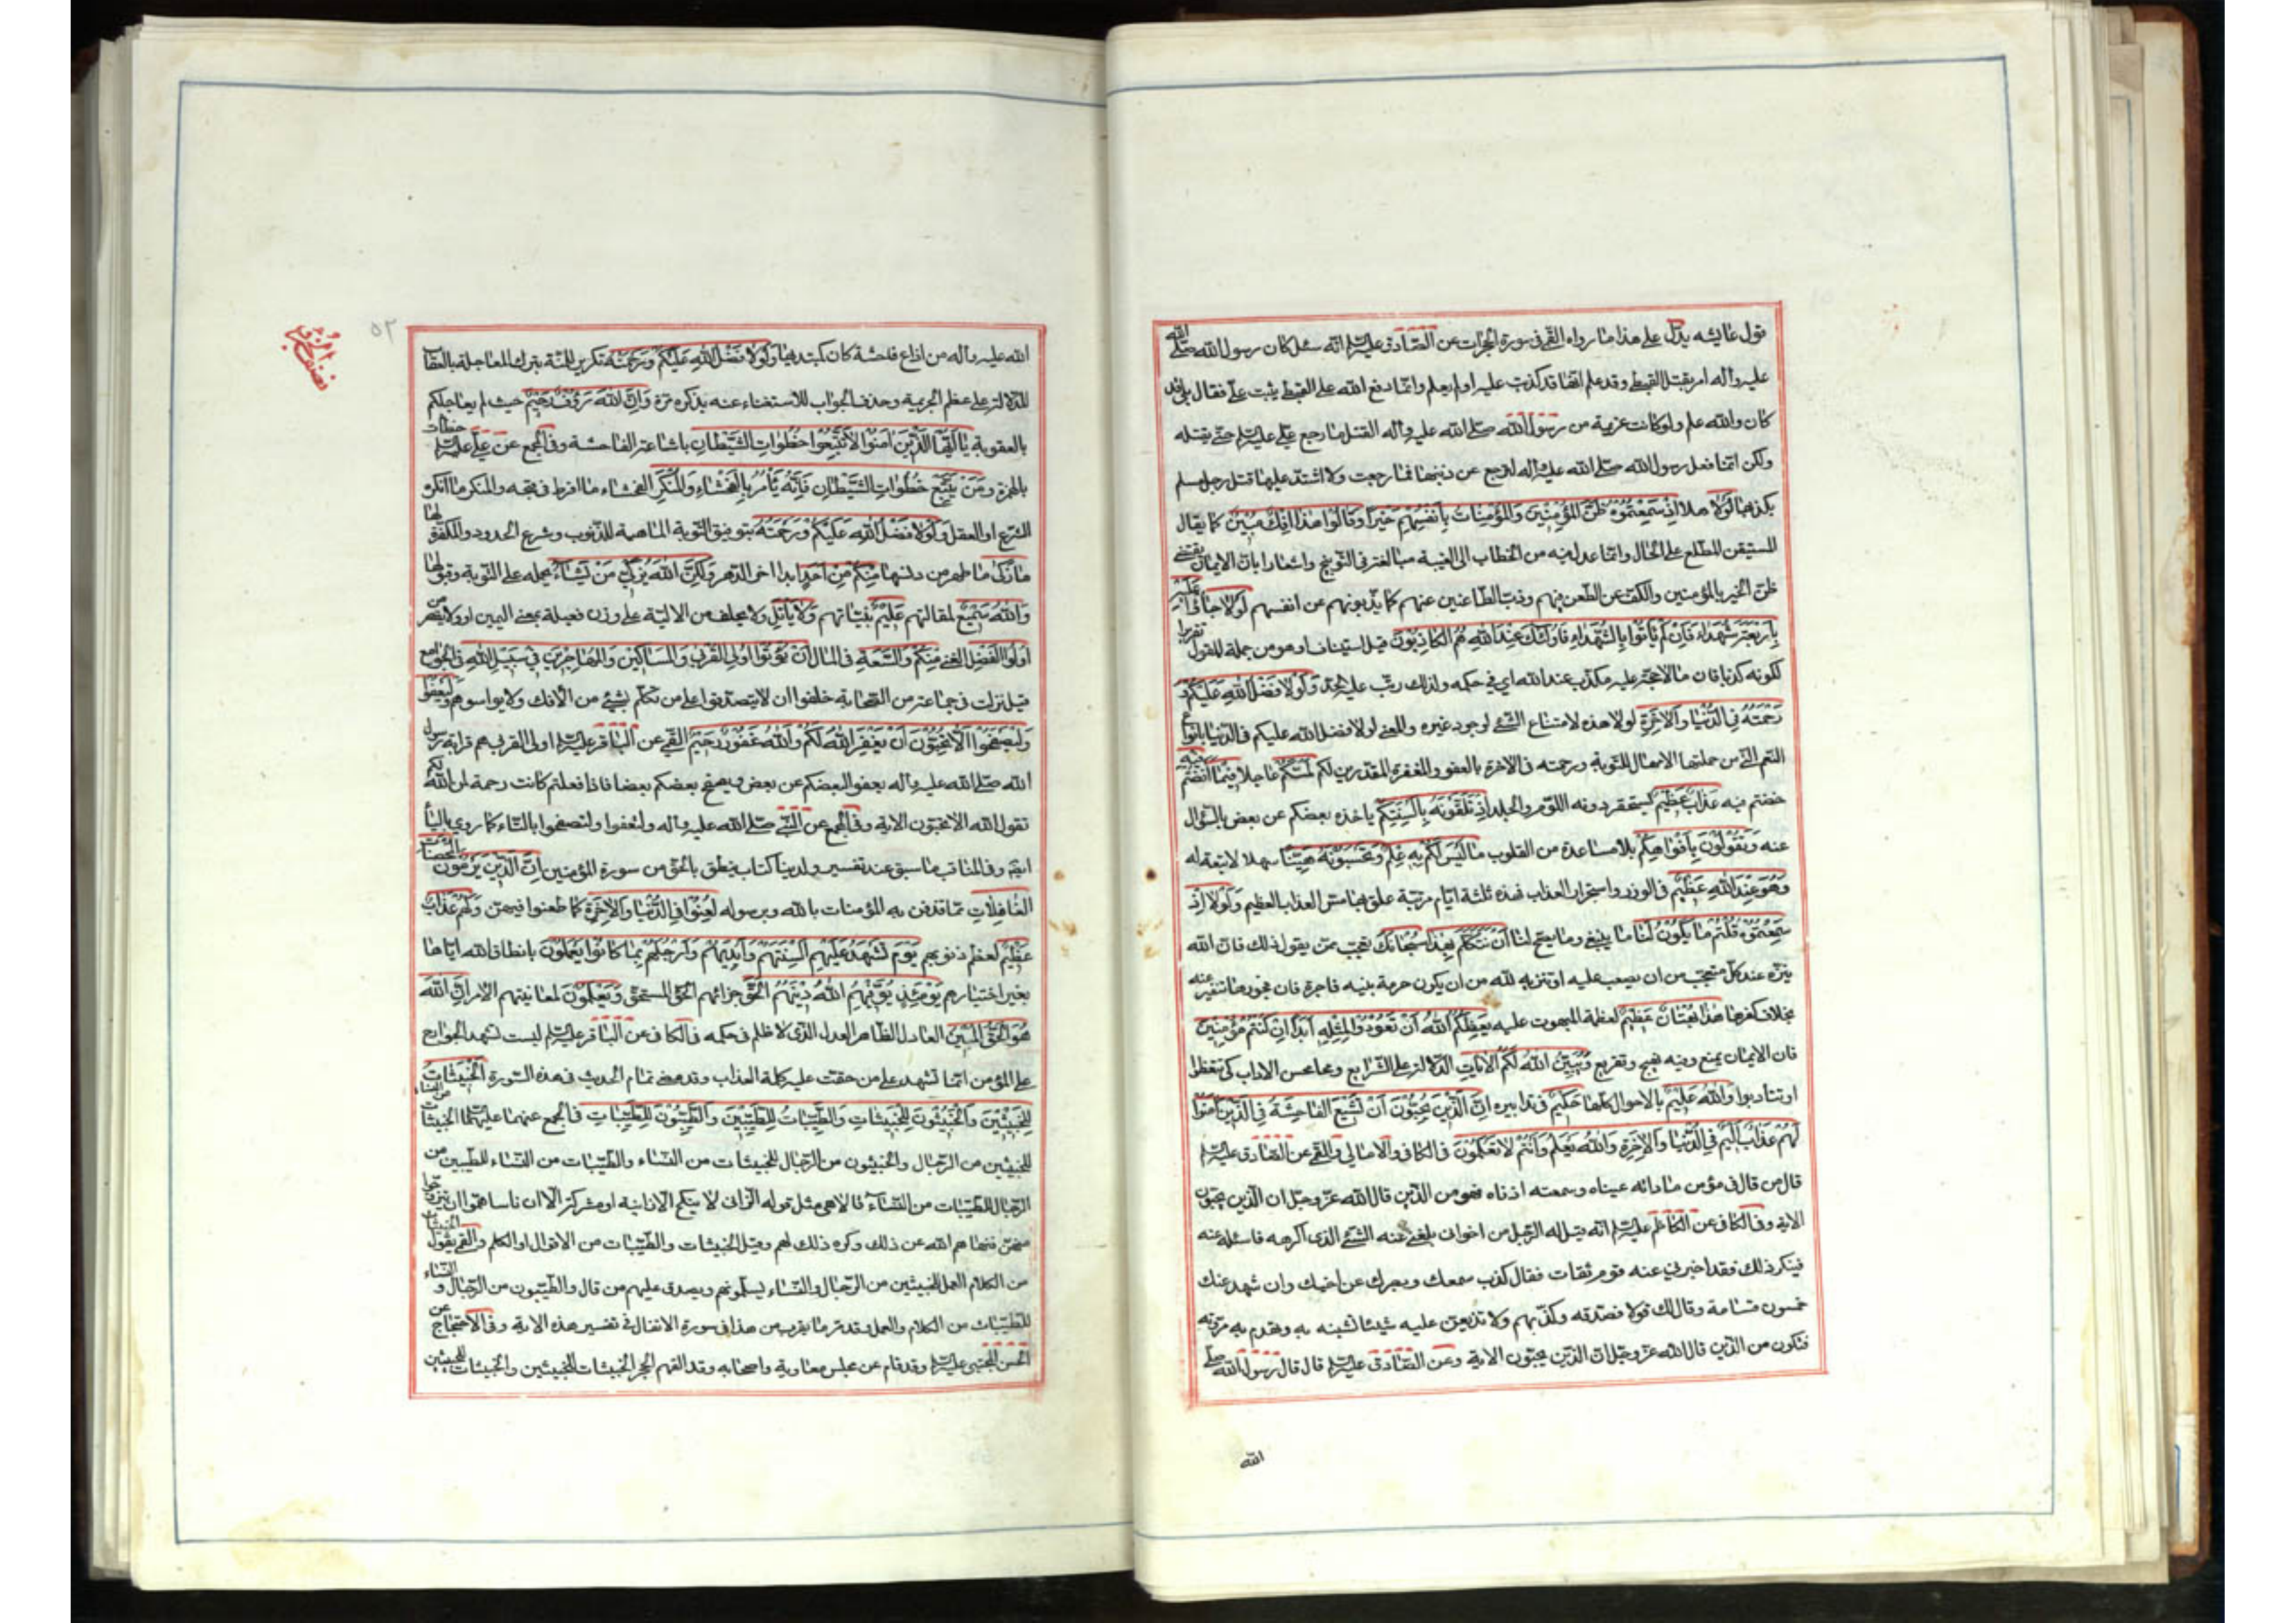 قول عايشه يدل على هذا ما رواه القمي في سورة الحجرات عن الصادق عليه السلم انه سئل كان رسول الله صلى الله
عليه واله امر بقتل القبطي وقد علم انها قد كذبت عليه او لم يعلم وانما دفع الله على القبطي يثبت علي فقال بلى قد
كان والله علم ولو كانت عزيمة من رسول الله صلى الله عليه واله القتل ما رجع علي عليه السلم حتى يقتله
ولكن انما فعل رسول الله صلى الله عليه واله لترجع عن ذنبها فما رجعت ولا اشتد عليها قتل رجل مسلم
بكذبها لَوْلا هلا اِذْ سَمِعْتُمُوهُ ظَنَّ الْمُؤْمِنِينَ وَالْمُؤْمِناتُ بِاَنْفُسِهِمْ خَيْراً وَقالُوا هذا اِفْكٌ مُبِينٌ كما يقال
المستيقن المطلع على الحال وانما عدل فيه من الخطاب الى الغيبة مبالغة في التوبيخ واشعارا بان الايمان يقتضي
ظن الخير بالمؤمنين والكف عن الطعن فيهم وذب الطاعنين عنهم كما يذبونهم عن انفسهم لَوْلا جاؤُا عَلَيْهِ
بِاَرْبَعَةِ شُهَداءَ فَاِنْ لَمْ يَأْتُوا بِالشُّهَداءِ فَاُولئِكَ عِنْدَ اللهِ هُمُ الْكاذِبُونَ قيل استيناف او هو من جملة المقول تقريرا
لكونه كذبا فان ما لا حجة عليه مكذب عند الله اي في حكمه ولذلك رتب عليه الحد وَلَوْلا فَضْلُ اللهِ عَلَيْكُمْ وَ
رَحْمَتُهُ فِي الدُّنْيا وَالْاخِرَةِ لولا هذه لامتناع الشئ لوجود غيره والمعنى لولا فضل الله عليكم في الدنيا بانواع
النعم التي من جملتها الامهال للتوبة ورحمته في الاخرة بالعفو والمغفرة المقدرين لكم لَمَسَّكُمْ عاجلا فِيما اَفَضْتُمْ فِيهِ
خضتم فيه عَذابٌ عَظِيمٌ يستحقر دونه اللوم والجلد اِذْ تَلَقَّوْنَهُ بِاَلْسِنَتِكُمْ ياخذه بعضكم عن بعض بالسؤال
عنه وَتَقُولُونَ بِاَفْواهِكُمْ بلا مساعدة من القلوب ما لَيْسَ لَكُمْ بِهِ عِلْمٌ وَتَحْسَبُونَهُ هَيِّناً سهلا لا تبعة له
وَهُوَ عِنْدَ اللهِ عَظِيمٌ في الوزر واستجرار العذاب فهذه ثلثة اثام مرتبة علق بها مس العذاب العظيم وَلَوْلا اِذْ
سَمِعْتُمُوهُ قُلْتُمْ ما يَكُونُ لَنا ما ينبغي وما يصح لنا اَنْ نَتَكَلَّمَ بِهذا سُبْحانَكَ تعجب ممن يقول ذلك فان الله
ينزه عند كل متعجب من ان يصعب عليه او تنزيه لله من ان يكون حرمة نبيه فاجرة فان فجورها تنفير عنه
بخلاف كفرها هذا بُهْتانٌ عَظِيمٌ لعظمة المبهوت عليه يَعِظُكُمُ اللهُ اَنْ تَعُودُوا لِمِثْلِهِ اَبَداً اِنْ كُنْتُمْ مُؤْمِنِينَ
فان الايمان يمنع وفيه تهييج وتقريع وَيُبَيِّنُ اللهُ لَكُمُ الْاياتِ الدلالة على الشرايع ومحاسن الاداب كي تتعظوا
او تتادبوا وَاللهُ عَلِيمٌ بالاحوال كلها حَكِيمٌ في تدابيره اِنَّ الَّذِينَ يُحِبُّونَ اَنْ تَشِيعَ الْفاحِشَةُ فِي الَّذِينَ امَنُوا
لَهُمْ عَذابٌ اَلِيمٌ فِي الدُّنْيا وَالْاخِرَةِ وَاللهُ يَعْلَمُ وَاَنْتُمْ لا تَعْلَمُونَ في الكافي والامالي والقمي عن الصادق عليه السلم
قال من قال في مؤمن ما راته عيناه وسمعته اذناه فهو من الذين قال الله عز وجل ان الذين يحبون
الاية وفي الكافي عن الكاظم عليه السلم انه قيل له الرجل من اخواني بلغني عنه الشئ الذي اكرهه فاسئله عنه
فينكر ذلك فقد اخبرني عنه قوم ثقات فقال كذب سمعك وبصرك عن اخيك وان شهد عندك
خمسون قسامة وقال لك قولا فصدقه وكذبهم ولا تذيعن عليه شيئا تشينه به وتهدم به مروته
فتكون من الذين قال الله عز وجل ان الذين يحبون الاية وعن الصادق عليه السلم قال قال رسول الله صلى
الله
٥٢
الله عليه واله من اذاع فاحشة كان كمبتدئها وَلَوْلا فَضْلُ اللهِ عَلَيْكُمْ وَرَحْمَتُهُ تكرير للمنة بترك المعاجلة بالعقاب
للدلالة على عظم الجريمة وحذف الجواب للاستغناء عنه بذكره مرة وَاَنَّ اللهَ رَؤُفٌ رَحِيمٌ حيث لم يعاجلكم
بالعقوبة يا اَيُّهَا الَّذِينَ امَنُوا لا تَتَّبِعُوا خُطُواتِ الشَّيْطانِ باشاعة الفاحشة وفي المجمع عن علي عليه السلم خطؤات
بالهمزة وَمَنْ يَتَّبِعْ خُطُواتِ الشَّيْطانِ فَاِنَّهُ يَأْمُرُ بِالْفَحْشاءِ وَالْمُنْكَرِ الفحشاء ما افرط في قبحه والمنكر ما انكره
الشرع او العقل وَلَوْلا فَضْلُ اللهِ عَلَيْكُمْ وَرَحْمَتُهُ بتوفيق التوبة الماحية للذنوب وشرع الحدود المكفرة لها
ما زَكى ما طهر من دنسها مِنْكُمْ مِنْ اَحَدٍ ابدا اخر الدهر وَلكِنَّ اللهَ يُزَكِّي مَنْ يَشاءُ بحمله على التوبة وقبولها
وَاللهُ سَمِيعٌ لمقالتهم عَلِيمٌ بنياتهم وَلا يَأْتَلِ ولا يحلف من الالية على وزن فعيلة بمعنى اليمين او ولا يقصر من
اُولُوا الْفَضْلِ الغنى مِنْكُمْ وَالسَّعَةِ في المال اَنْ يُؤْتُوا اُولِي الْقُرْبى وَالْمَساكِينَ وَالْمُهاجِرِينَ فِي سَبِيلِ اللهِ في الجوامع
قيل نزلت في جماعة من الصحابة حلفوا ان لا يتصدقوا على من تكلم بشئ من الافك ولا يواسوهم وَلْيَعْفُوا
وَلْيَصْفَحُوا اَلا تُحِبُّونَ اَنْ يَغْفِرَ اللهُ لَكُمْ وَاللهُ غَفُورٌ رَحِيمٌ القمي عن الباقر عليه السلم اولي القربى هم قرابة رسول
الله صلى الله عليه واله يعفو البعضكم عن بعض ويصفح بعضكم بعضا فاذا فعلتم كانت رحمة من الله لكم
تقول الله الا تحبون الاية وفي المجمع عن النبي صلى الله عليه واله ولتعفوا ولتصفحوا بالتاء كما روي بالياء
ايضا وفي المناقب ما سبق عند تفسير ولدينا كتاب ينطق بالحق من سورة المؤمنين اِنَّ الَّذِينَ يَرْمُونَ الْمُحْصَناتِ
الْغافِلاتِ مما قذفن به المؤمنات بالله وبرسوله لُعِنُوا فِي الدُّنْيا وَالْاخِرَةِ كما طعنوا فيهن وَلَهُمْ عَذابٌ
عَظِيمٌ لعظم ذنوبهم يَوْمَ تَشْهَدُ عَلَيْهِمْ اَلْسِنَتُهُمْ وَاَيْدِيهِمْ وَاَرْجُلُهُمْ بِما كانُوا يَعْمَلُونَ بانطاق الله اياها
بغير اختيارهم يَوْمَئِذٍ يُوَفِّيهِمُ اللهُ دِينَهُمُ الْحَقَّ جزائهم الحق المستحق وَيَعْلَمُونَ لمعاينتهم الامر اَنَّ اللهَ
هُوَ الْحَقُّ الْمُبِينُ العادل الظاهر العدل الذي لا ظلم في حكمه في الكافي عن الباقر عليه السلم ليست تشهد الجوارح
على المؤمن انما تشهد على من حقت عليه كلمة العذاب وقد مضى تمام الحديث في هذه السورة اَلْخَبِيثاتُ
لِلْخَبِيثِينَ وَالْخَبِيثُونَ لِلْخَبِيثاتِ وَالطَّيِّباتُ لِلطَّيِّبِينَ وَالطَّيِّبُونَ لِلطَّيِّباتِ في المجمع عنهما عليهما السلم الخبيثات من النساء
للخبيثين من الرجال والخبيثون من الرجال للخبيثات من النساء والطيبات من النساء للطيبين من
الرجال للطيبات من النساء قالا هي مثل قوله الزاني لا ينكح الا زانية او مشركة الا ان ناسا هموا ان يتزوجوا
منهن فنهاهم الله عن ذلك وكره ذلك لهم وقيل الخبيثات والطيبات من الاقوال او الكلم والقمي يقول الخبيثات
من الكلام العمل للخبيثين من الرجال والنساء يسلمونهم ويصدق عليهم من قال والطيبون من الرجال و النساء
للطيبات من الكلام والعمل وقد مر ما يقرب من هذا في سورة الانفال في تفسير هذه الاية وفي الاحتجاج عن
الحسن المجتبى عليه السلم وقد قام عن مجلس معاوية واصحابه وقد القمهم الحجر الخبيثات للخبيثين والخبيثات للخبيثين